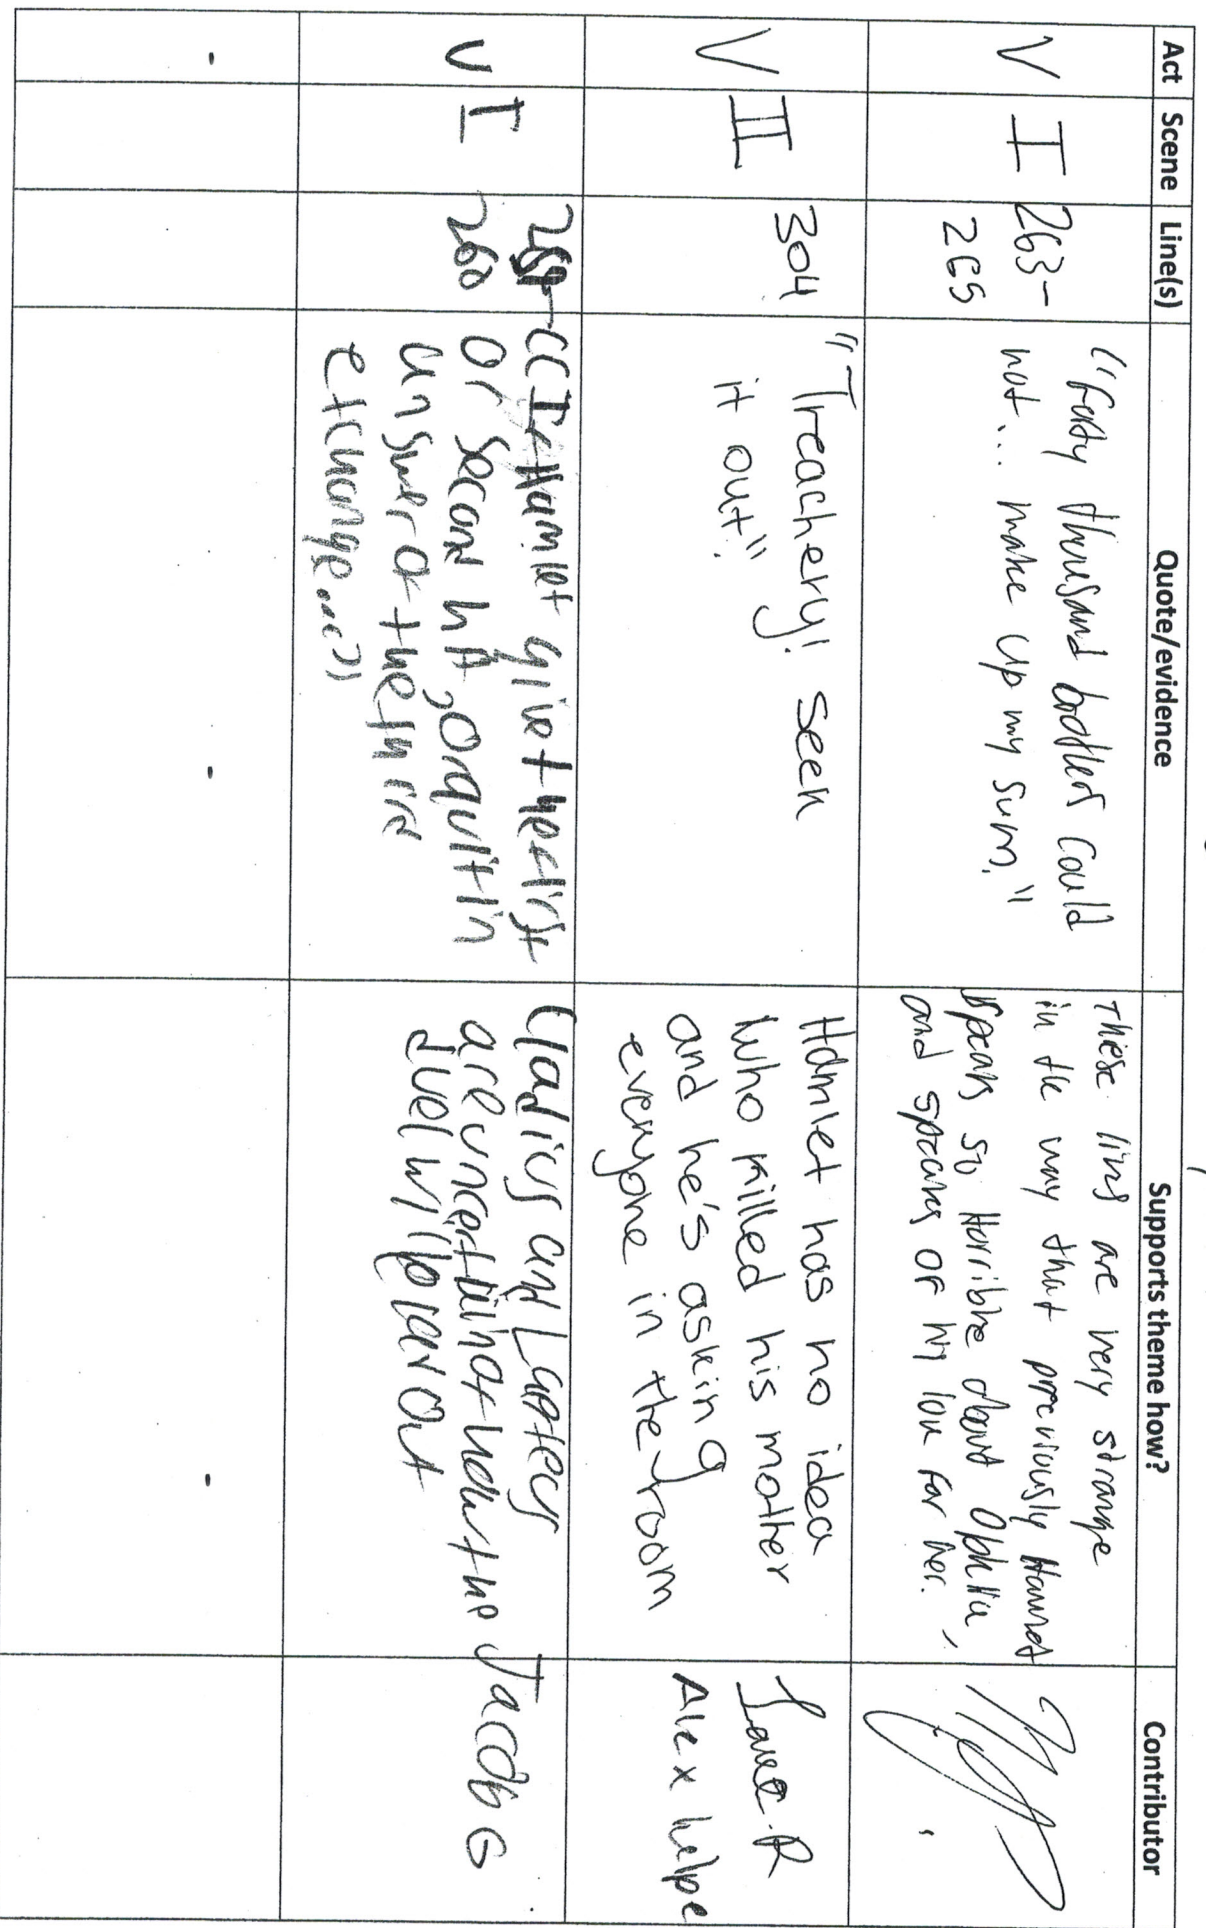 Act Scene Line(s) Quote/evidence Supports theme how? Contributor
V I 263-
265
"Forty thousand brothers could
not... make up my sum."
These lines are very strange
in the way that previously Hamlet
speaks so Horrible about Ophelia,
and speaks of his love for her.
V II 304
"Treachery! seek
it out"
Hamlet has no idea
who killed his mother
and he's asking
everyone in the room
Alex helpe
V I
260
"If Hamlet give the first
or second hit, or quit in
answer of the third
exchange..."
Claudius and Laertes
are uncertain of how the
duel will play out
Jacob G